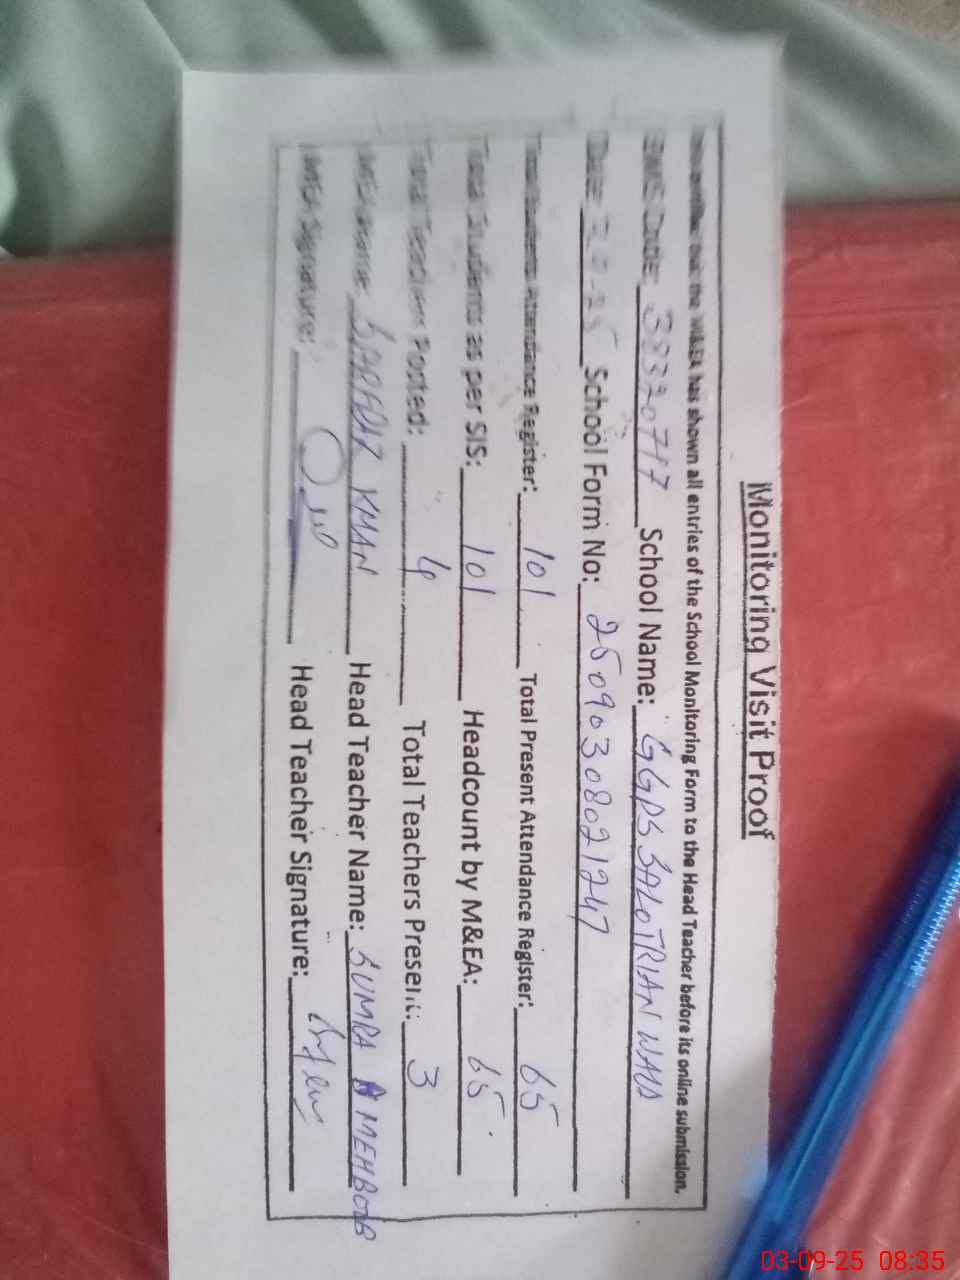 Monitoring Visit Proof
that the M&EA has shown all entries of the School Monitoring Form to the Head Teacher before its online submission.
EMIS Code: 38320717 School Name: GGPS BALOTRIAN WALA
Date: 3-9-25 School Form No: 25090308021247
Total Students Attendance Register: 101 Total Present Attendance Register: 65
Total Students as per SIS: 101 Headcount by M&EA: 65
Total Teachers Posted: 4 Total Teachers Present: 3
M&EA Name: SARFRAZ KHAN Head Teacher Name: SUMRA MEHBOOB
M&EA Signature: Head Teacher Signature:
03-09-25 08:35